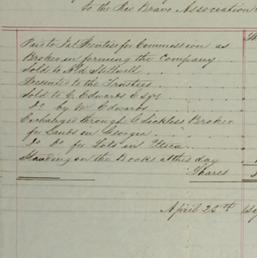 to the Rio Bravo Association
Paid to Jas Prentiss for Commission as
Broker in forming the Company
Sold to Stillwell
Presented to the Trustees
Sold to C. Edwards Esqr
Do by Mr Edwards
Exchanged through G Suckless Broker
for Lands in Georgia
Do Do for Lots in Utica
Standing on the Books at this day
Shares
April 25th